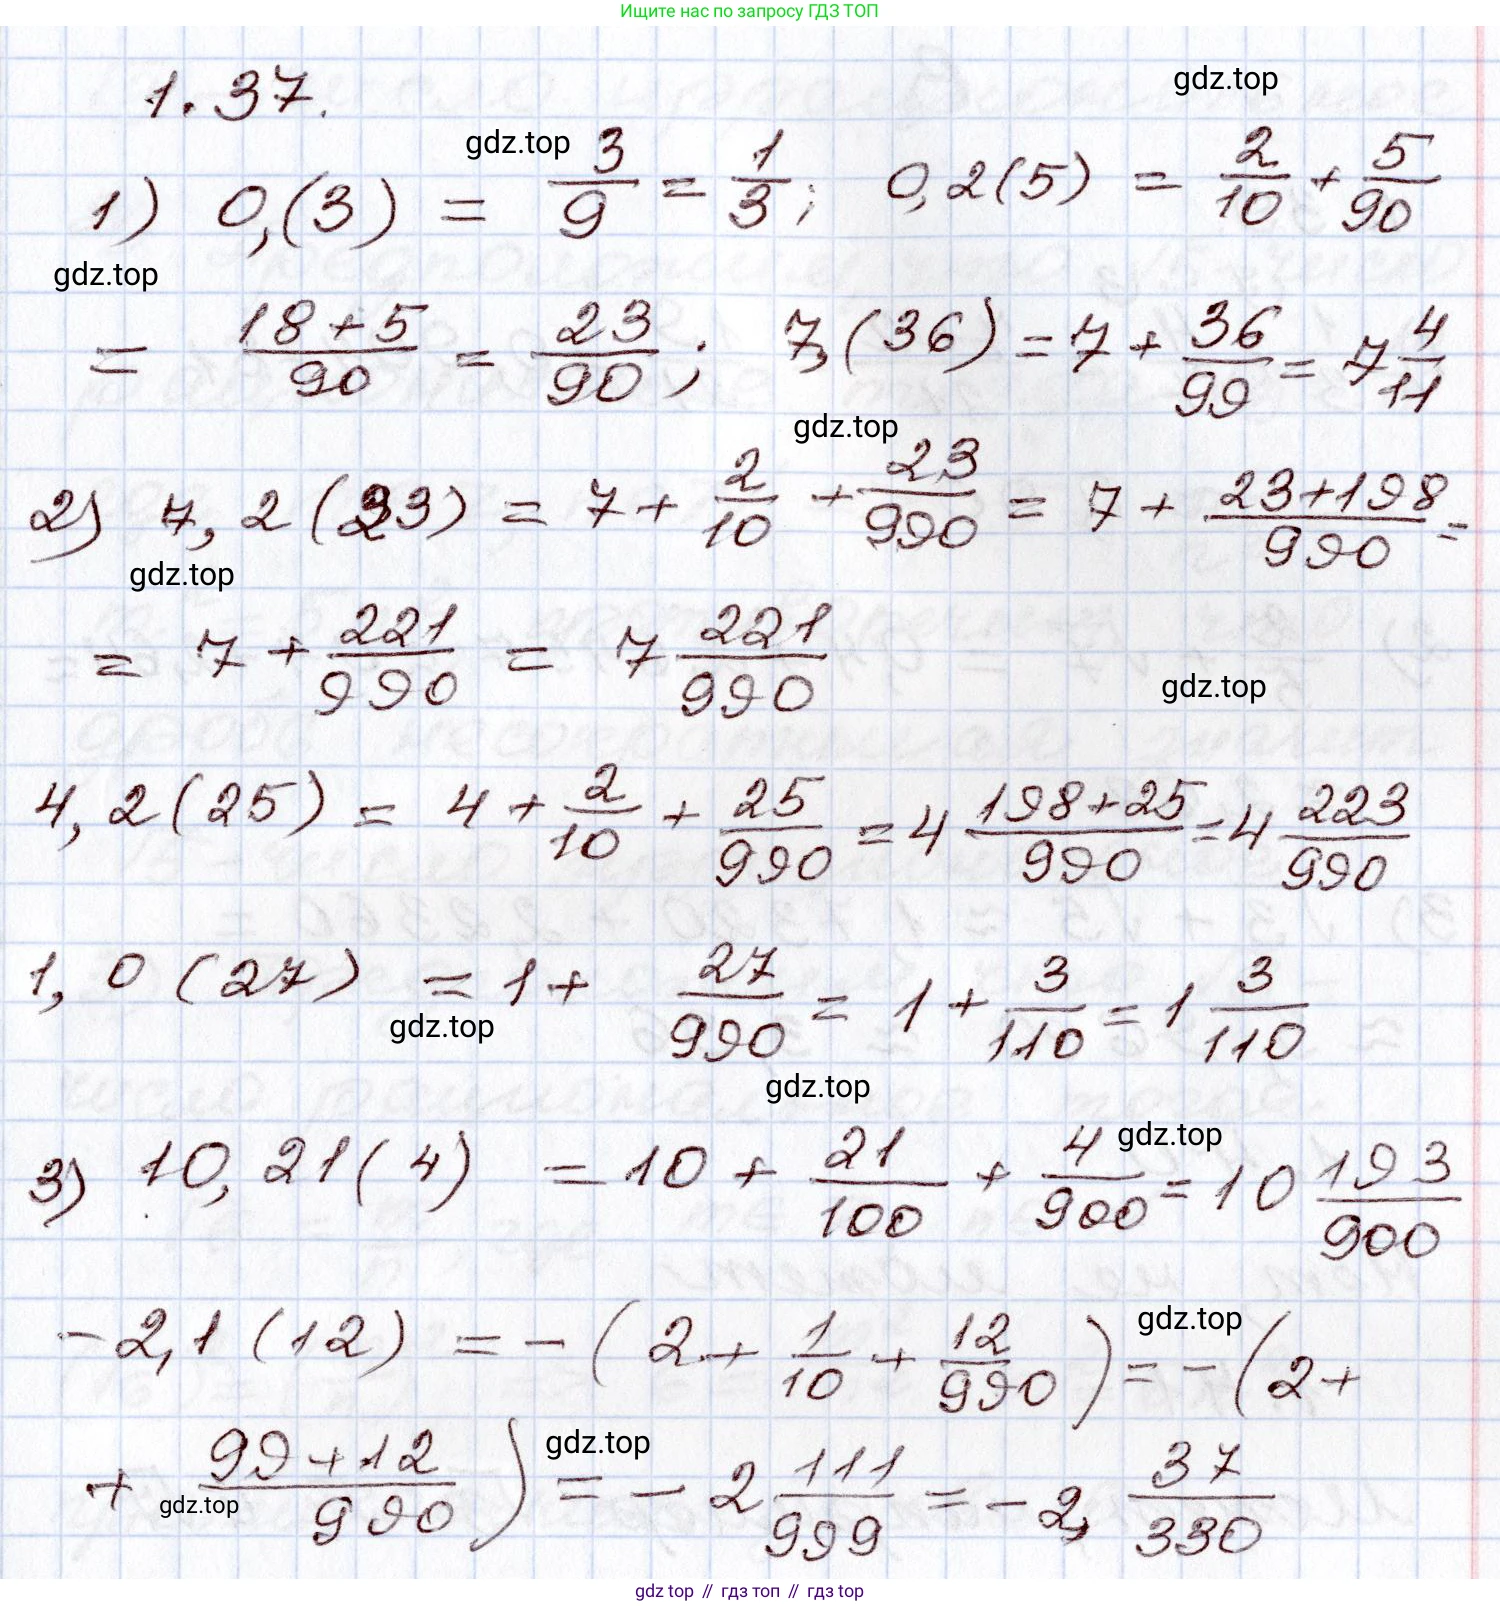 Ищите нас по запросу ГДЗ ТОП
gdz.top
1.37.
gdz.top
1) 0,(3) = 3/9 = 1/3; 0,2(5) = 2/10 + 5/90
gdz.top
= 18+5/90 = 23/90; 7,(36) = 7 + 36/99 = 7 4/11
gdz.top
2) 7,2(23) = 7 + 2/10 + 23/990 = 7 + 23+198/990 =
gdz.top
= 7 + 221/990 = 7 221/990
gdz.top
4,2(25) = 4 + 2/10 + 25/990 = 4 198+25/990 = 4 223/990
1,0(27) = 1 + 27/990 = 1 + 3/110 = 1 3/110
gdz.top
gdz.top
gdz.top
3) 10,21(4) = 10 + 21/100 + 4/900 = 10 193/900
gdz.top
-2,1(12) = -(2 + 1/10 + 12/990) = -(2 +
gdz.top
+ 99+12/990) = -2 111/999 = -2, 37/330
gdz.top
gdz top // гдз топ // гдз top